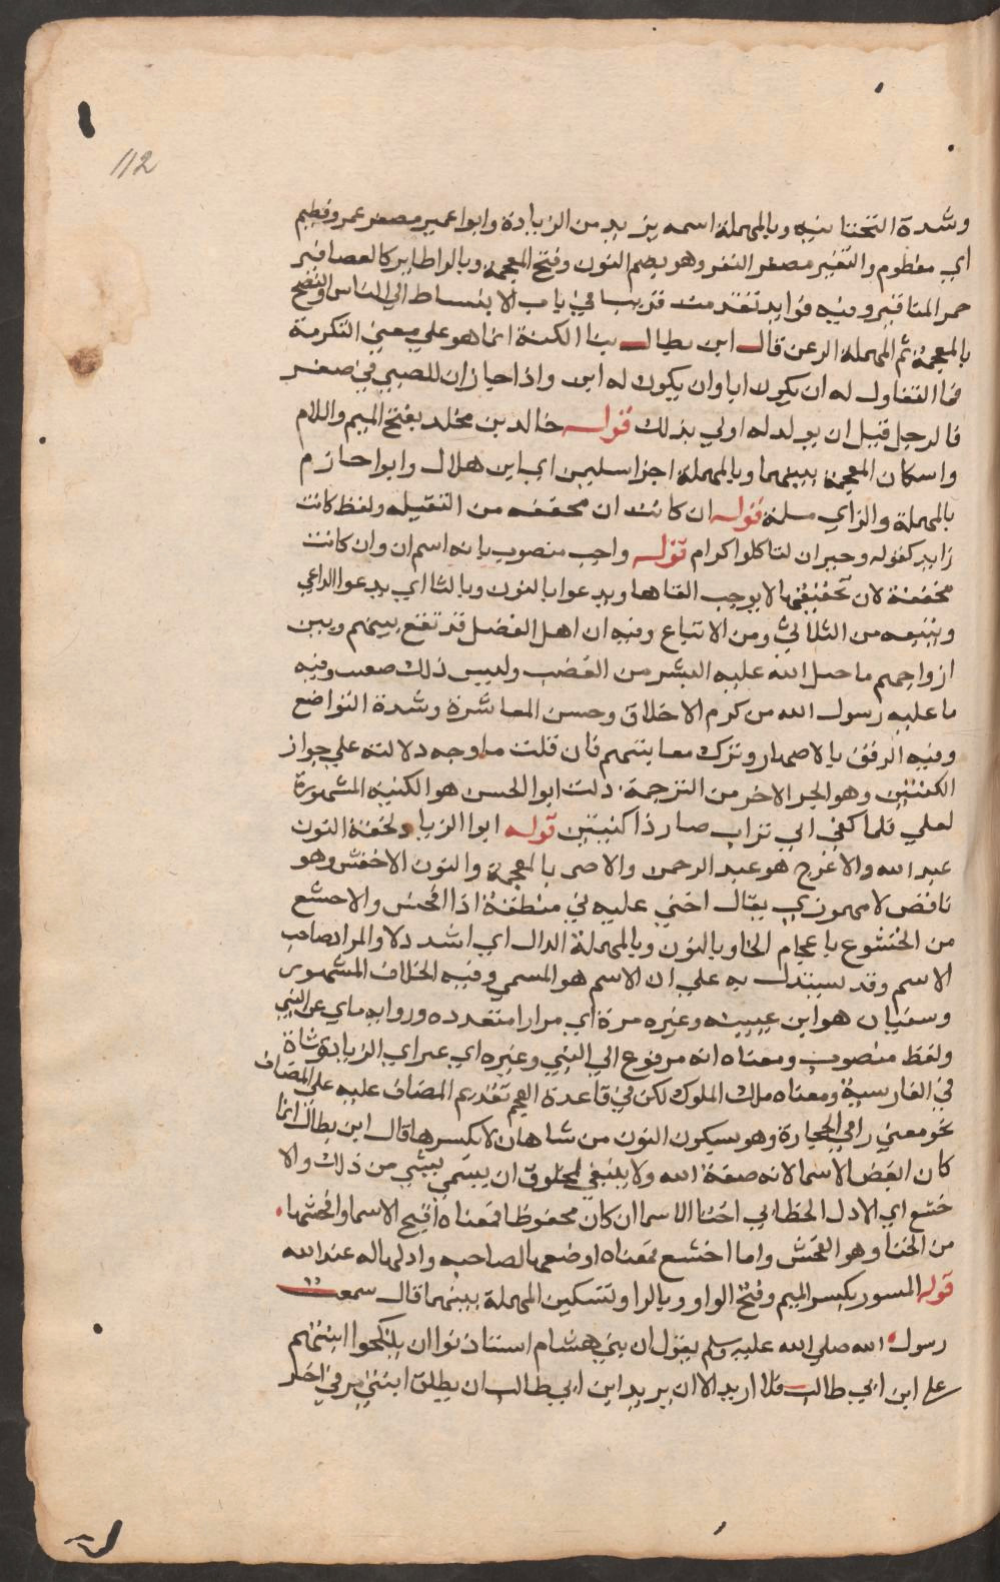 112
وشدة التحتانيه وبالمهملة اسمه يزيد من الزيادة وابوا عمير مصغر عمرو فطيم
اي مفطوم والنغير مصغر النغر وهو بضم النون وفتح المعجمه وبالرا طاير كالعصافير
حمر المناقير وفيه فوايد تقدمت قريبا في باب الانبساط الي الناس والنضح
بالمعجمة ثم المهملة الرعن قال ابن بطال بنا الكنية انما هو علي معني التكرمة
فما التفاول له ان يكون ابا وان يكون له ابن واذا جاز ان للصبي في صغر
فالرجل قبل ان يولد له اولي بذلك قوله خالد بن مخلد بفتح الميم واللام
واسكان المعجمة بينهما وبالمهملة اجزا سليمن اي ابن هلال وابوا حازم
بالمهملة والزاي سلمة قوله ان كانت ان مخففه من الثقيله ولفظ كانت
زايد كقوله وجيران لنا كانوا كرام قوله واحب منصوب بانه اسم ان وان كانت
مخففة لان تخفيفها لا يوجب الغاها ويدعوا بالنون وبالتا اي يدعوا الداعي
ويتبعه من الثلاثي ومن الاتباع وفيه ان اهل الفضل قد تقع بينهم وبين
ازواجهم ما جبل الله عليه البشر من الغضب وليس ذلك بعيب وفيه
ما عليه رسول الله من كرم الاخلاق وحسن المعاشرة وشدة التواضع
وفيه الرفق بالاصهار وترك معاتبتهم فان قلت ما وجه دلالته علي جواز
الكنيتين وهو الجز الاخر من الترجمة قلت ابوا الحسن هو الكنيه المشهورة
لعلي فلما كني ابي تراب صار ذا كنيتين قوله ابوا الزناد بخفة النون
عبد الله والاعرج هو عبد الرحمن والاخنى بالمعجمة والنون الافحش وهو
ناقص لا مهموز يقال اخني عليه في منطقه اذا افحش والاخشع
من الخشوع باعجام الخا وبالنون وبالمهملة الدال اي اشد ذلا والمراد صاحب
الاسم وقد يستدل به علي ان الاسم هو المسمي وفيه الخلاف المشهور
وسفيان هو ابن عيينه وغيره مرة اي مرارا متعدده وروايه ماي عن النبي
ولفظ منصوب ومعناه انه مرفوع الي النبي وغيره اي غير ابي الزناد وشاة
في الفارسية ومعناه ملك الملوك لكن في قاعدة العجم تقديم المضاف عليه علي المضاف
نحو معني رامي الحجارة وهو بسكون النون من شاهان لا بكسرها قال ابن بطال انما
كان ابغض الاسما لانه صفة الله ولا ينبغي لمخلوق ان يسمي بشي من ذلك والا
خشع اي الاذل الخطابي اخنا الاسما ان كان محفوظا فمعناه اقبح الاسما وافحشها
من الخنا وهو الفحش واما اخشع فمعناه اوضعها لصاحبه واذلها له عند الله
قوله المسور بكسر الميم وفتح الواو وبالرا وتسكين المهملة بينهما قال سمعت
رسول الله صلي الله عليه وسلم يقول ان بني هشام استاذنوا ان ينكحوا ابنتهم
علي ابن ابي طالب فلا اريد الا ان يريد ابن ابي طالب ان يطلق ابنتي مر في اخر